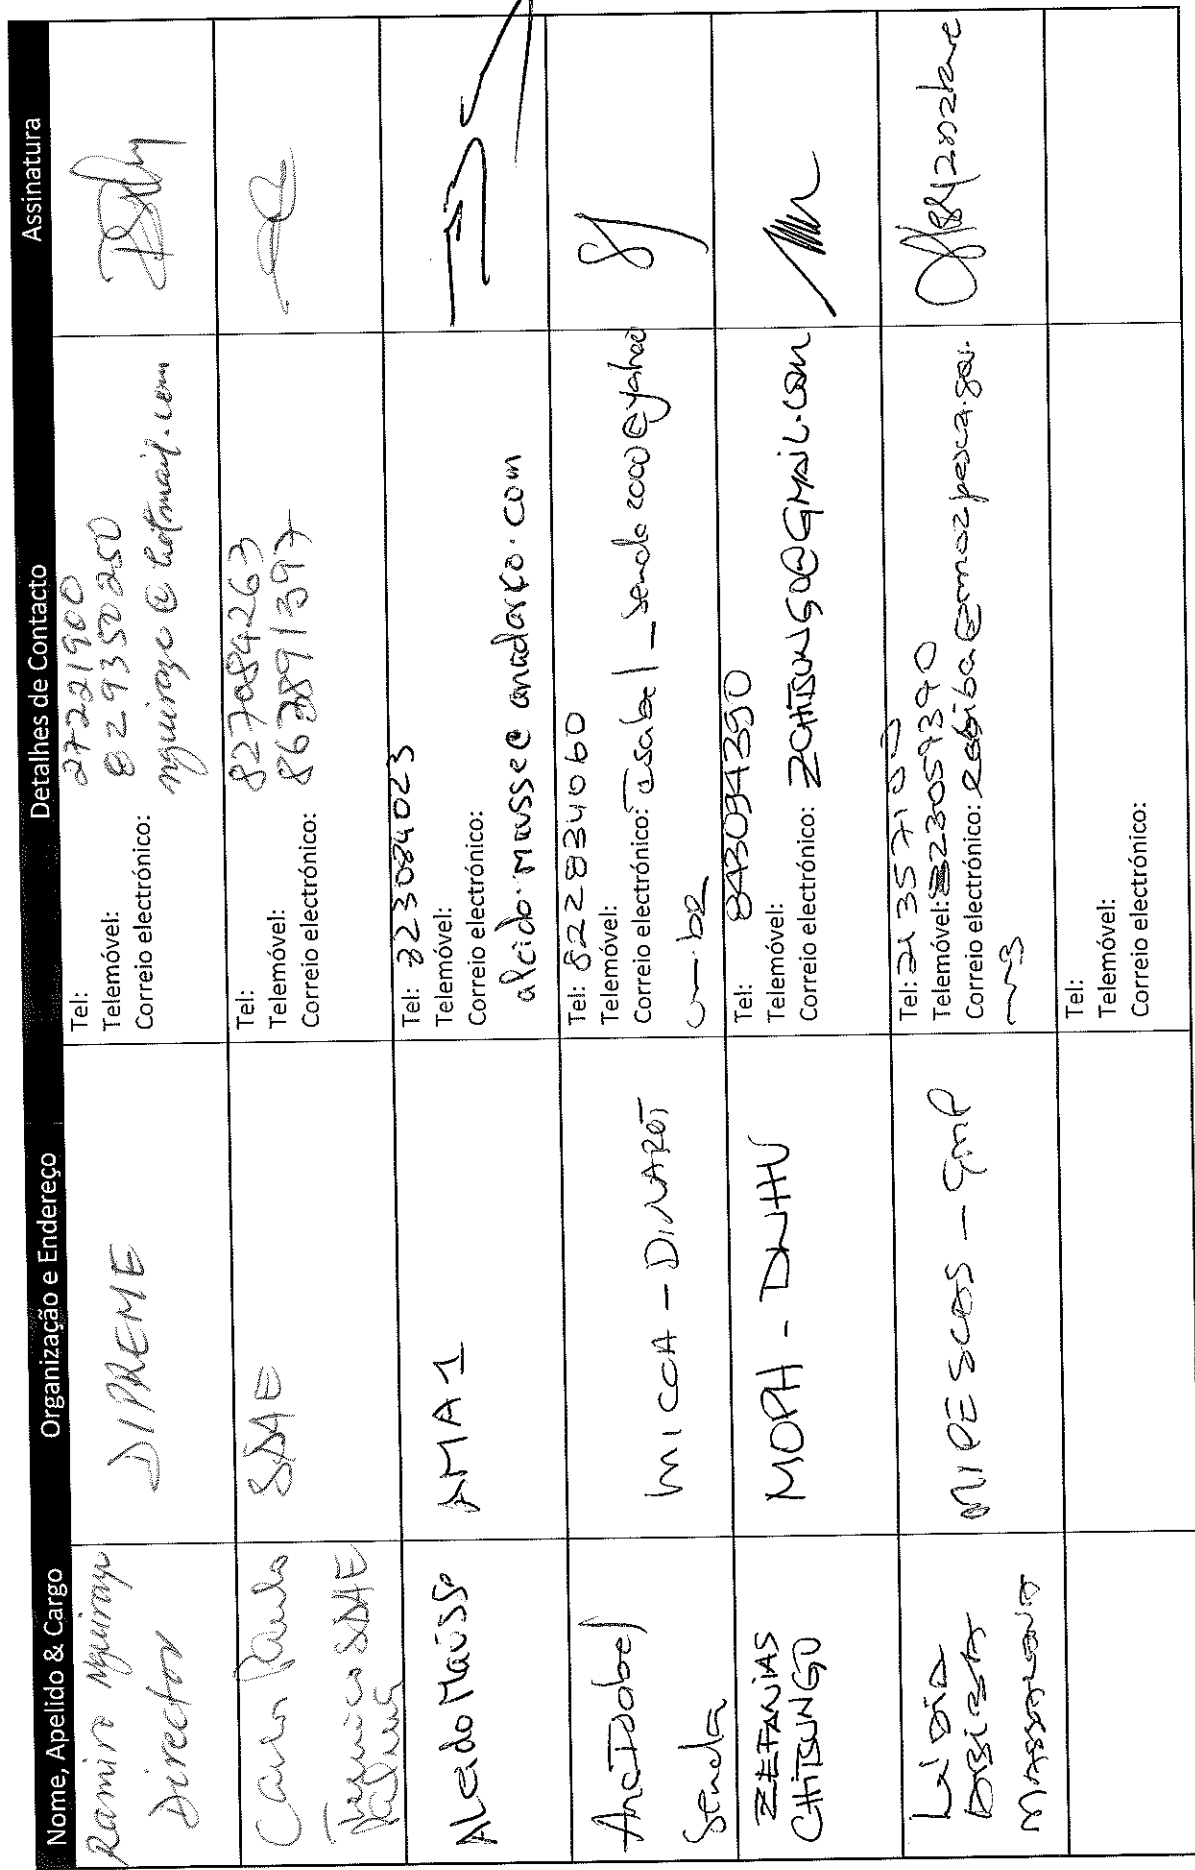 Nome, Apelido & Cargo Organização e Endereço Detalhes de Contacto Assinatura
Ramiro Nguiraze
Director
DIPREME
Tel: 27221900
Telemóvel: 829350250
Correio electrónico: nguiraze@hotmail.com
Carlos Paulo
Técnico SDAE
Palma
SDAE
Tel: 827084263
Telemóvel: 862891397
Correio electrónico:
Alcido Mausse
AMA1
Tel: 823084023
Telemóvel:
Correio electrónico:
alcido.mausse@anadarko.com
Ana Isabel
Senda
MICOA - DINAPOT
Tel: 822834060
Telemóvel:
Correio electrónico: isabel_senda2000@yahoo
ZEFANIAS
CHITSUNGO
MOPH - DNHU
Tel: 843094390
Telemóvel:
Correio electrónico: ZCHITSUNGO@GMAIL.COM
MIPESCAS -
Tel: 21357103
Telemóvel: 823059390
Correio electrónico:
Tel:
Telemóvel:
Correio electrónico: